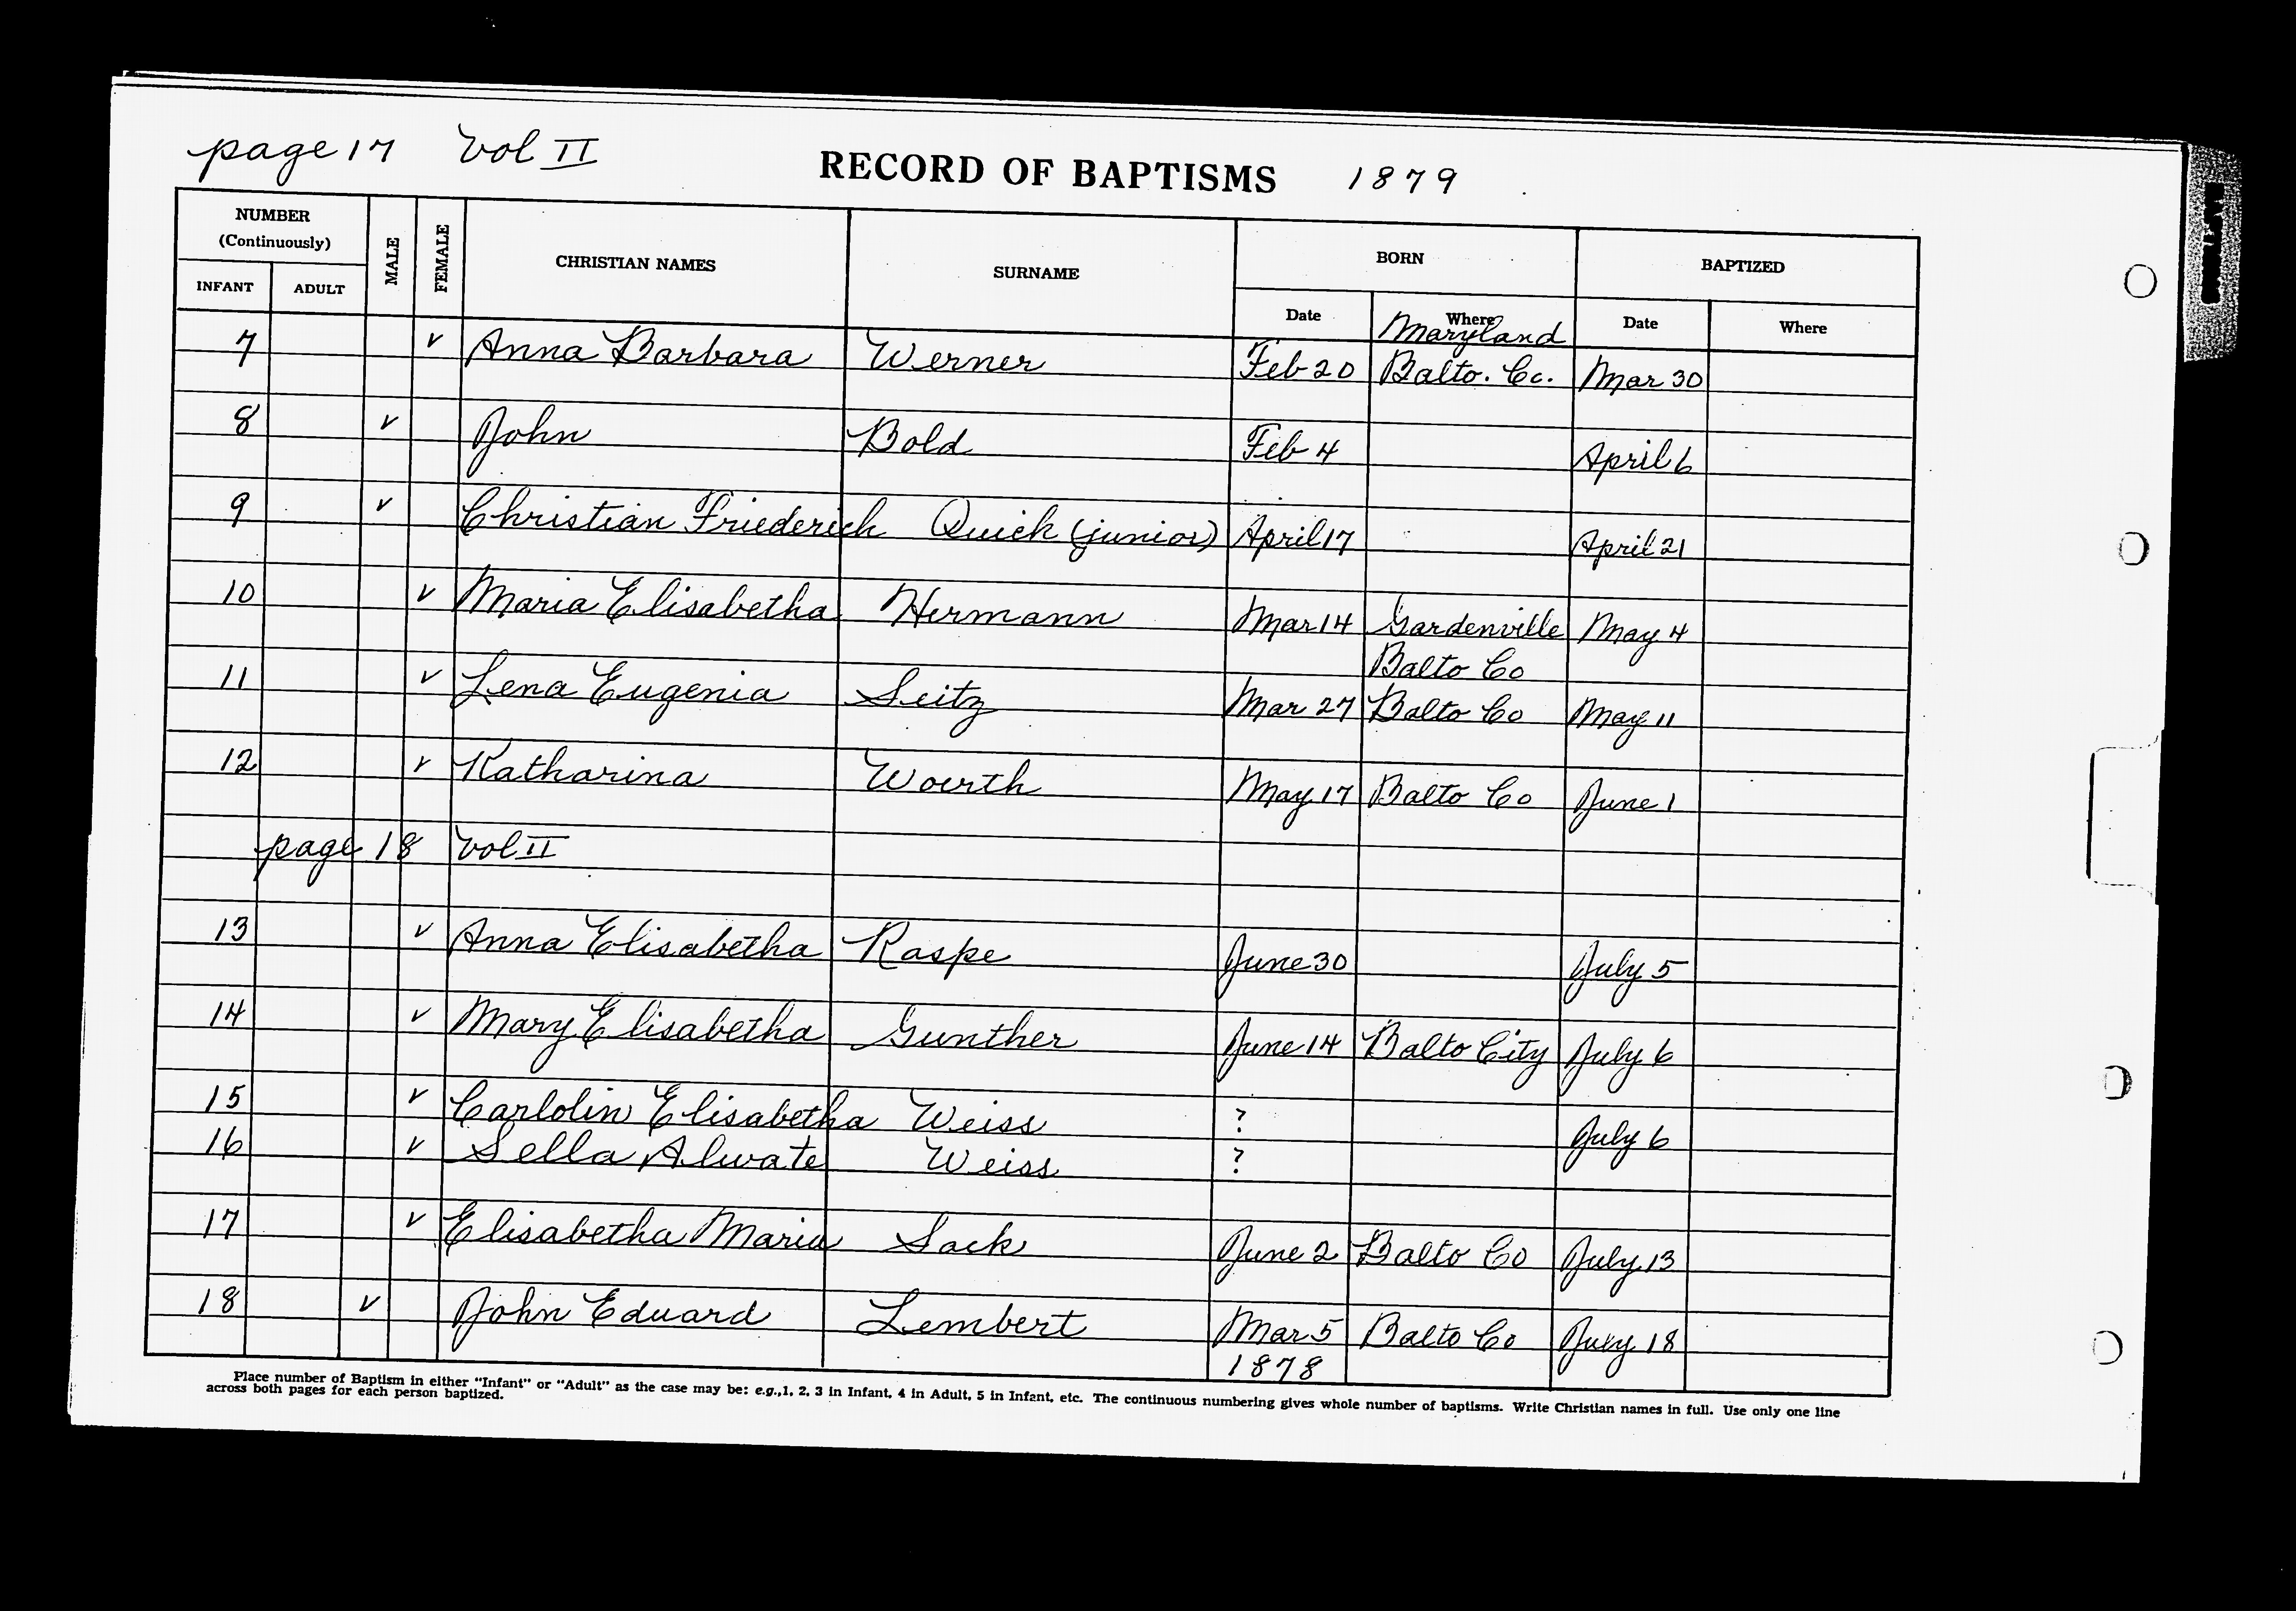 page 17 Vol II RECORD OF BAPTISMS 1879
NUMBER (Continuously) MALE FEMALE CHRISTIAN NAMES SURNAME BORN BAPTIZED
INFANT ADULT Date Where Date Where
Maryland
7 v Anna Barbara Werner Feb 20 Balto. Co. Mar 30
8 v John Bold Feb 4 April 6
9 v Christian Friederich Quick (junior) April 17 April 21
10 v Maria Elisabetha Hermann Mar 14 Gardenville May 4
Balto Co
11 v Lena Eugenia Seitz Mar 27 Balto Co May 11
12 v Katharina Woerth May 17 Balto Co June 1
page 18 Vol II
13 v Anna Elisabetha Raspe June 30 July 5
14 v Mary Elisabetha Gunther June 14 Balto City July 6
15 v Carlolin Elisabetha Weiss ? July 6
16 v Sella Alwate Weiss ?
17 v Elisabetha Maria Sack June 2 Balto Co July 13
18 v John Eduard Lembert Mar 5 Balto Co July 18
1878
Place number of Baptism in either "Infant" or "Adult" as the case may be: e.g.,1, 2, 3 in Infant, 4 in Adult, 5 in Infant, etc. The continuous numbering gives whole number of baptisms. Write Christian names in full. Use only one line
across both pages for each person baptized.